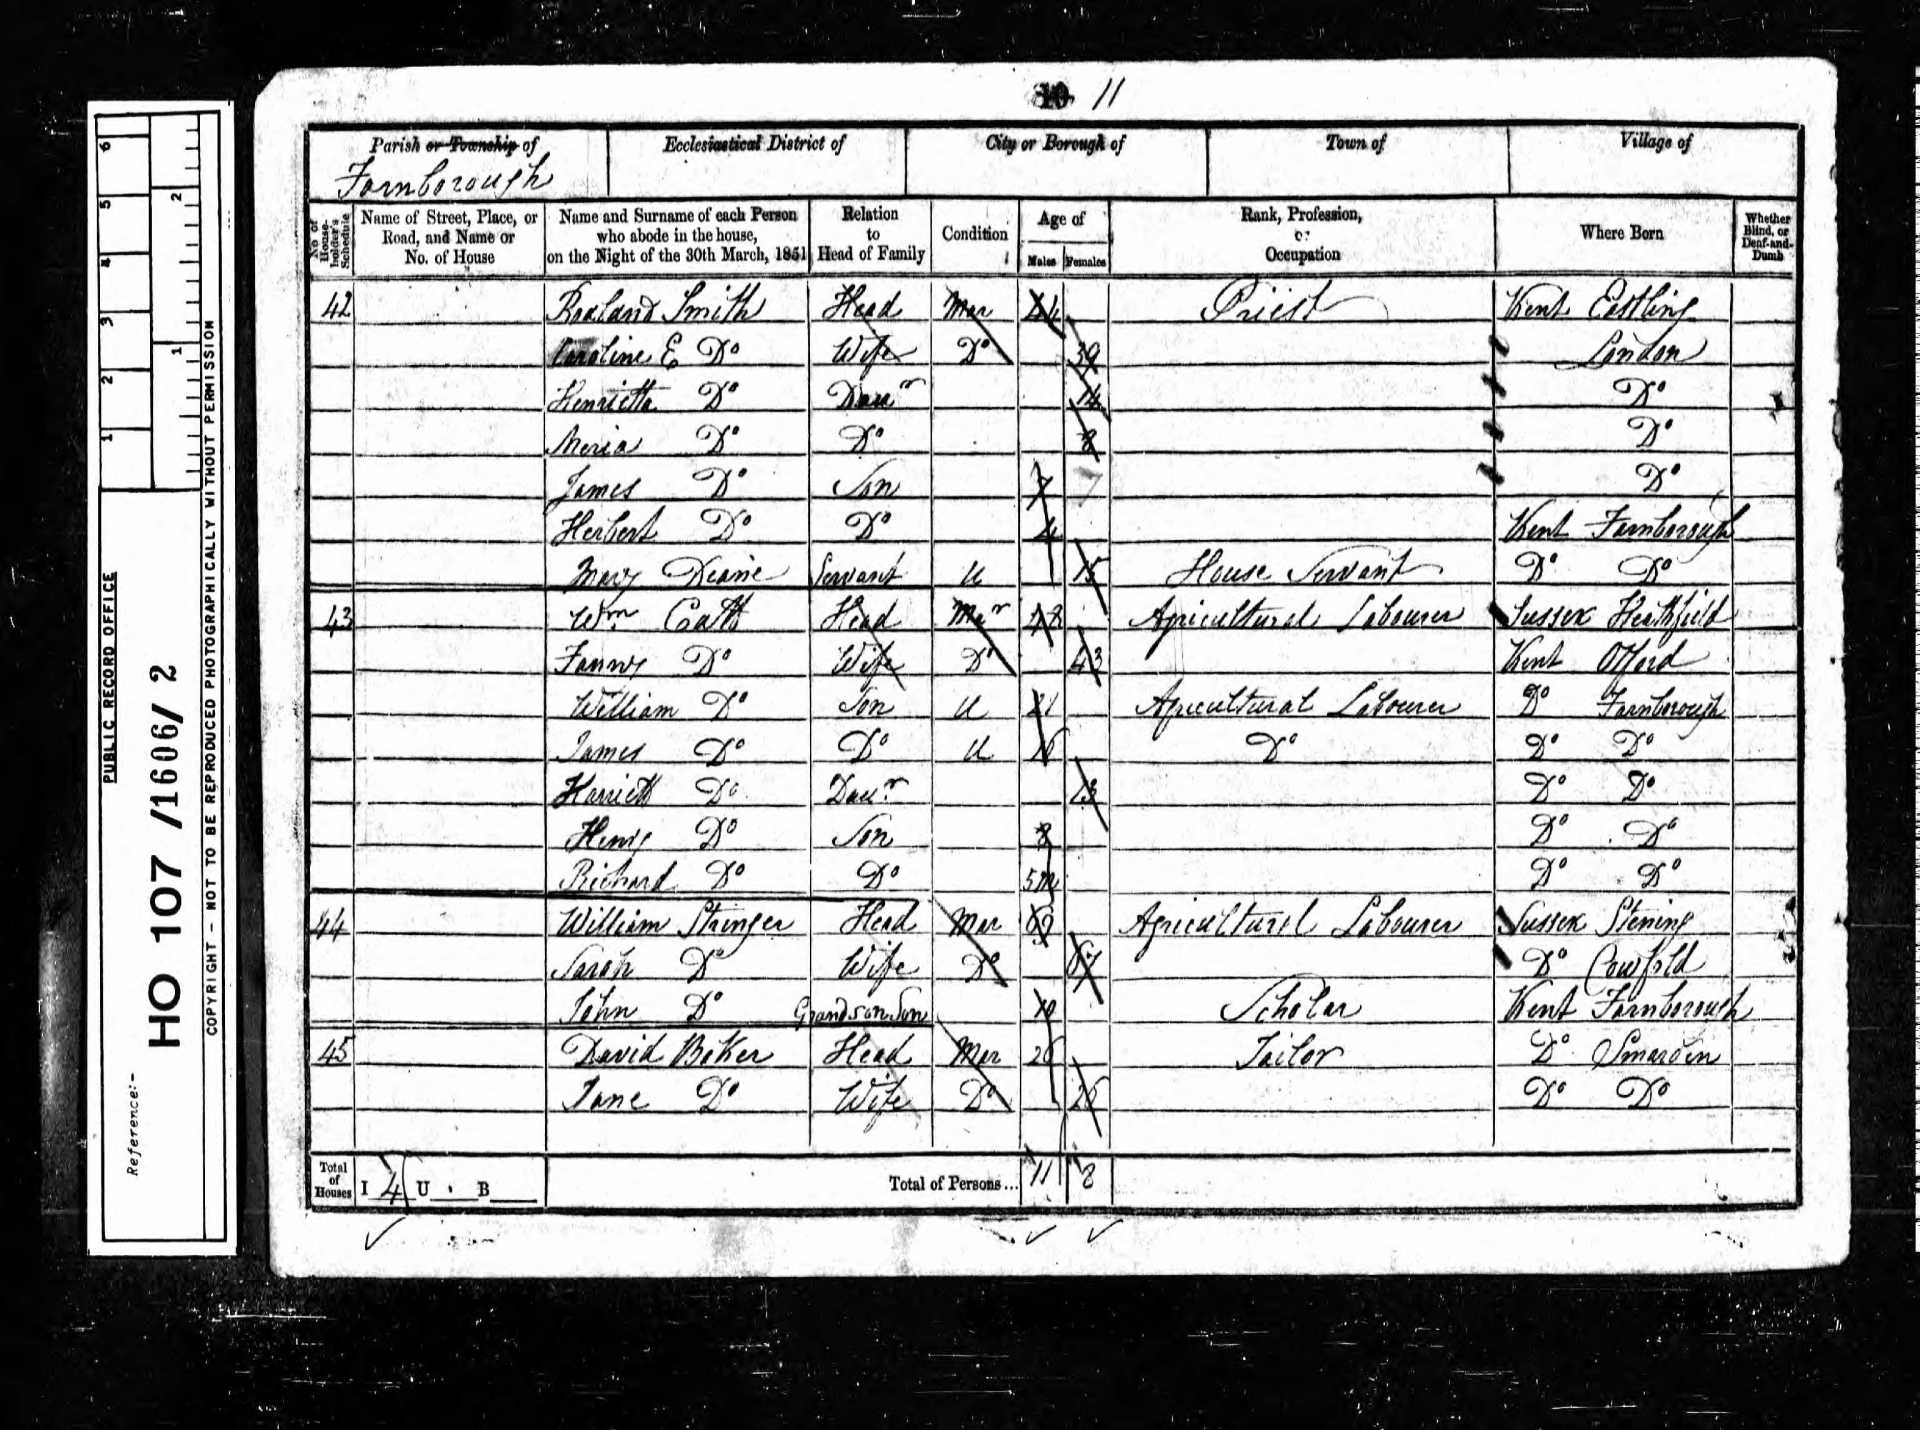 10 11
Parish or Township of Ecclesiastical District of City or Borough of Town of Village of
Farnborough
No. of Householder's Schedule Name of Street, Place, or Road, and Name or No. of House Name and Surname of each Person who abode in the house, on the Night of the 30th March, 1851 Relation to Head of Family Condition Age of Males Females Rank, Profession, or Occupation Where Born Whether Blind, or Deaf-and-Dumb
42 Smith Head Mar 44 Priest Kent Eastling
Caroline E Do Wife Do 39 London
Henrietta Do Daur 14 Do
Maria Do Do 8 Do
James Do Son 7 7 Do
Herbert Do Do 4 Kent Farnborough
Mary Deane Servant U 15 House Servant Do Do
43 Wm Catt Head Mar 48 Agricultural Labourer Sussex Heathfield
Fanny Do Wife Do 43 Kent Offord
William Do Son U 21 Agricultural Labourer Do Farnborough
James Do Do U 16 Do Do Do
Harriett Do Daur 13 Do Do
Henry Do Son 8 Do Do
Richard Do Do 5m Do Do
44 William Stringer Head Mar 69 Agricultural Labourer Sussex Stening
Sarah Do Wife Do 67 Do Cowfold
John Do Grandson Son 10 Scholar Kent Farnborough
45 David Baker Head Mar 26 Tailor Do Smarden
Jane Do Wife Do 26 Do Do
Total of Houses I 4 U B Total of Persons... 11 8
PUBLIC RECORD OFFICE
Reference:-
HO 107 /1606/ 2
COPYRIGHT - NOT TO BE REPRODUCED PHOTOGRAPHICALLY WITHOUT PERMISSION
1 2 3 4 5 6
1 2